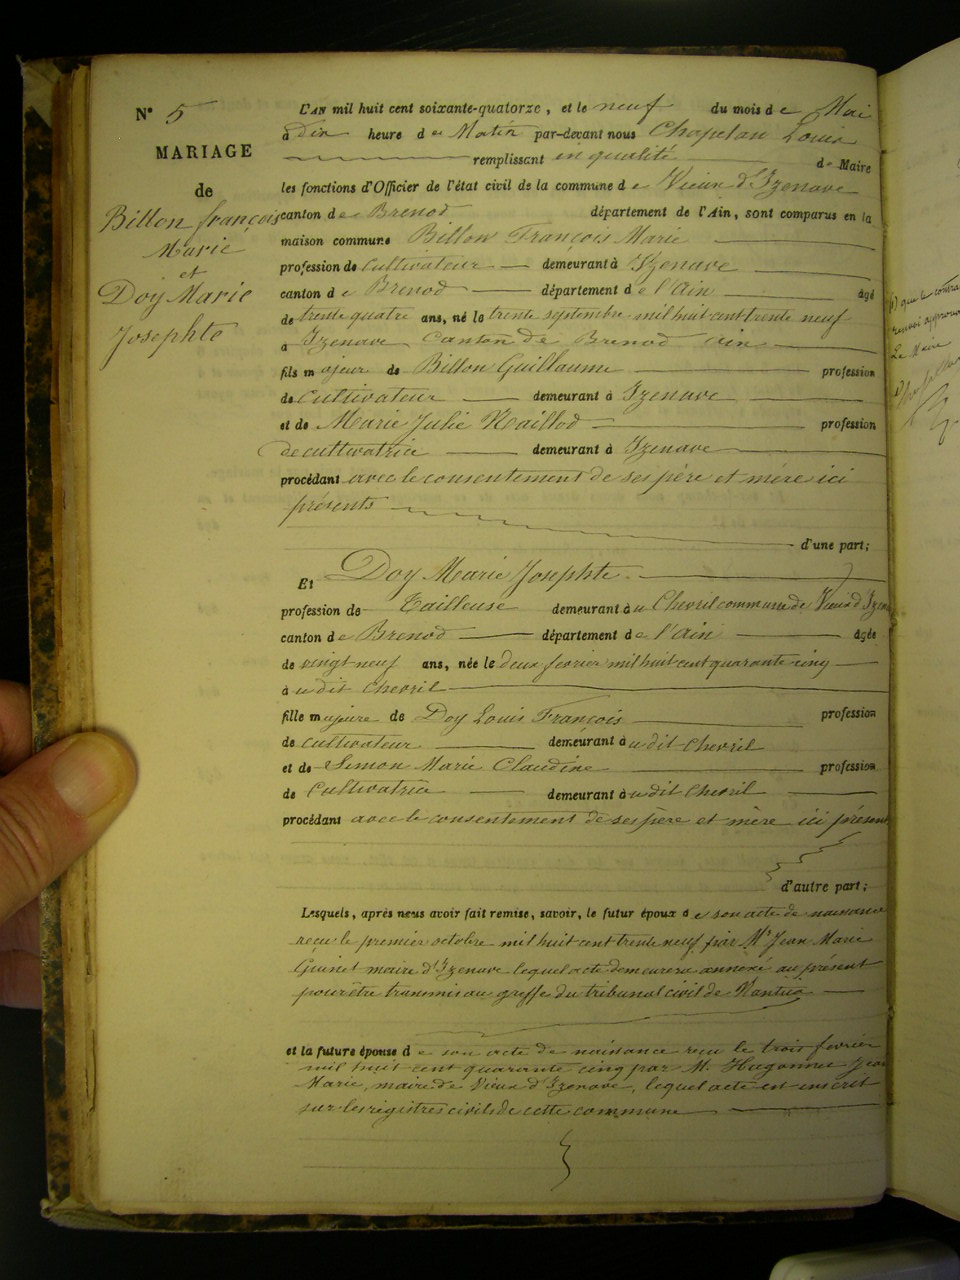 N° 5
MARIAGE
de
Billon françois
Marie
et
Doy Marie
Josephte
L'AN mil huit cent soixante-quatorze, et le neuf du mois de Mai
à dix heure de Matin par-devant nous Chapelan Louis
remplissant en qualité de Maire
les fonctions d'Officier de l'état civil de la commune de Vieux d'Izenave
canton de Brenod département de l'Ain, sont comparus en la
maison commune Billon François Marie
profession de cultivateur demeurant à Izenave
canton de Brenod département de l'Ain âgé
de trente quatre ans, né le trente septembre mil huit cent trente neuf
à Izenave Canton de Brenod Ain
fils majeur de Billon Guillaume profession
de cultivateur demeurant à Izenave
et de Marie Julie Maillod profession
de cultivatrice demeurant à Izenave
procédant avec le consentement de ses père et mère ici
présents
d'une part;
Et Doy Marie Josephte
profession de Tailleuse demeurant au Chevril commune de Vieux d'Izen
canton de Brenod département de l'Ain âgée
de vingt neuf ans, née le deux fevrier mil huit cent quarante cinq
à udit Chevril
fille majeure de Doy Louis François profession
de cultivateur demeurant à udit Chevril
et de Simon Marie Claudine profession
de Cultivatrice demeurant à udit Chevril
procédant avec le consentement de ses père et mère ici présent
d'autre part;
Lesquels, après nous avoir fait remise, savoir, le futur époux de son acte de naissance
reçu le premier octobre mil huit cent trente neuf par Mr Jean Marie
Guinet maire d'Izenave lequel acte demeurera annexé au présent
pour être transmis au greffe du tribunal civil de Nantua
et la future épouse de son acte de naissance reçu le trois fevrier
mil huit cent quarante cinq par M. Hugonnet Jean
Marie, maire de Vieux d'Izenave, lequel acte est inscrit
sur les registres civils de cette commune
que le contra
renvoi approuv
Le Maire